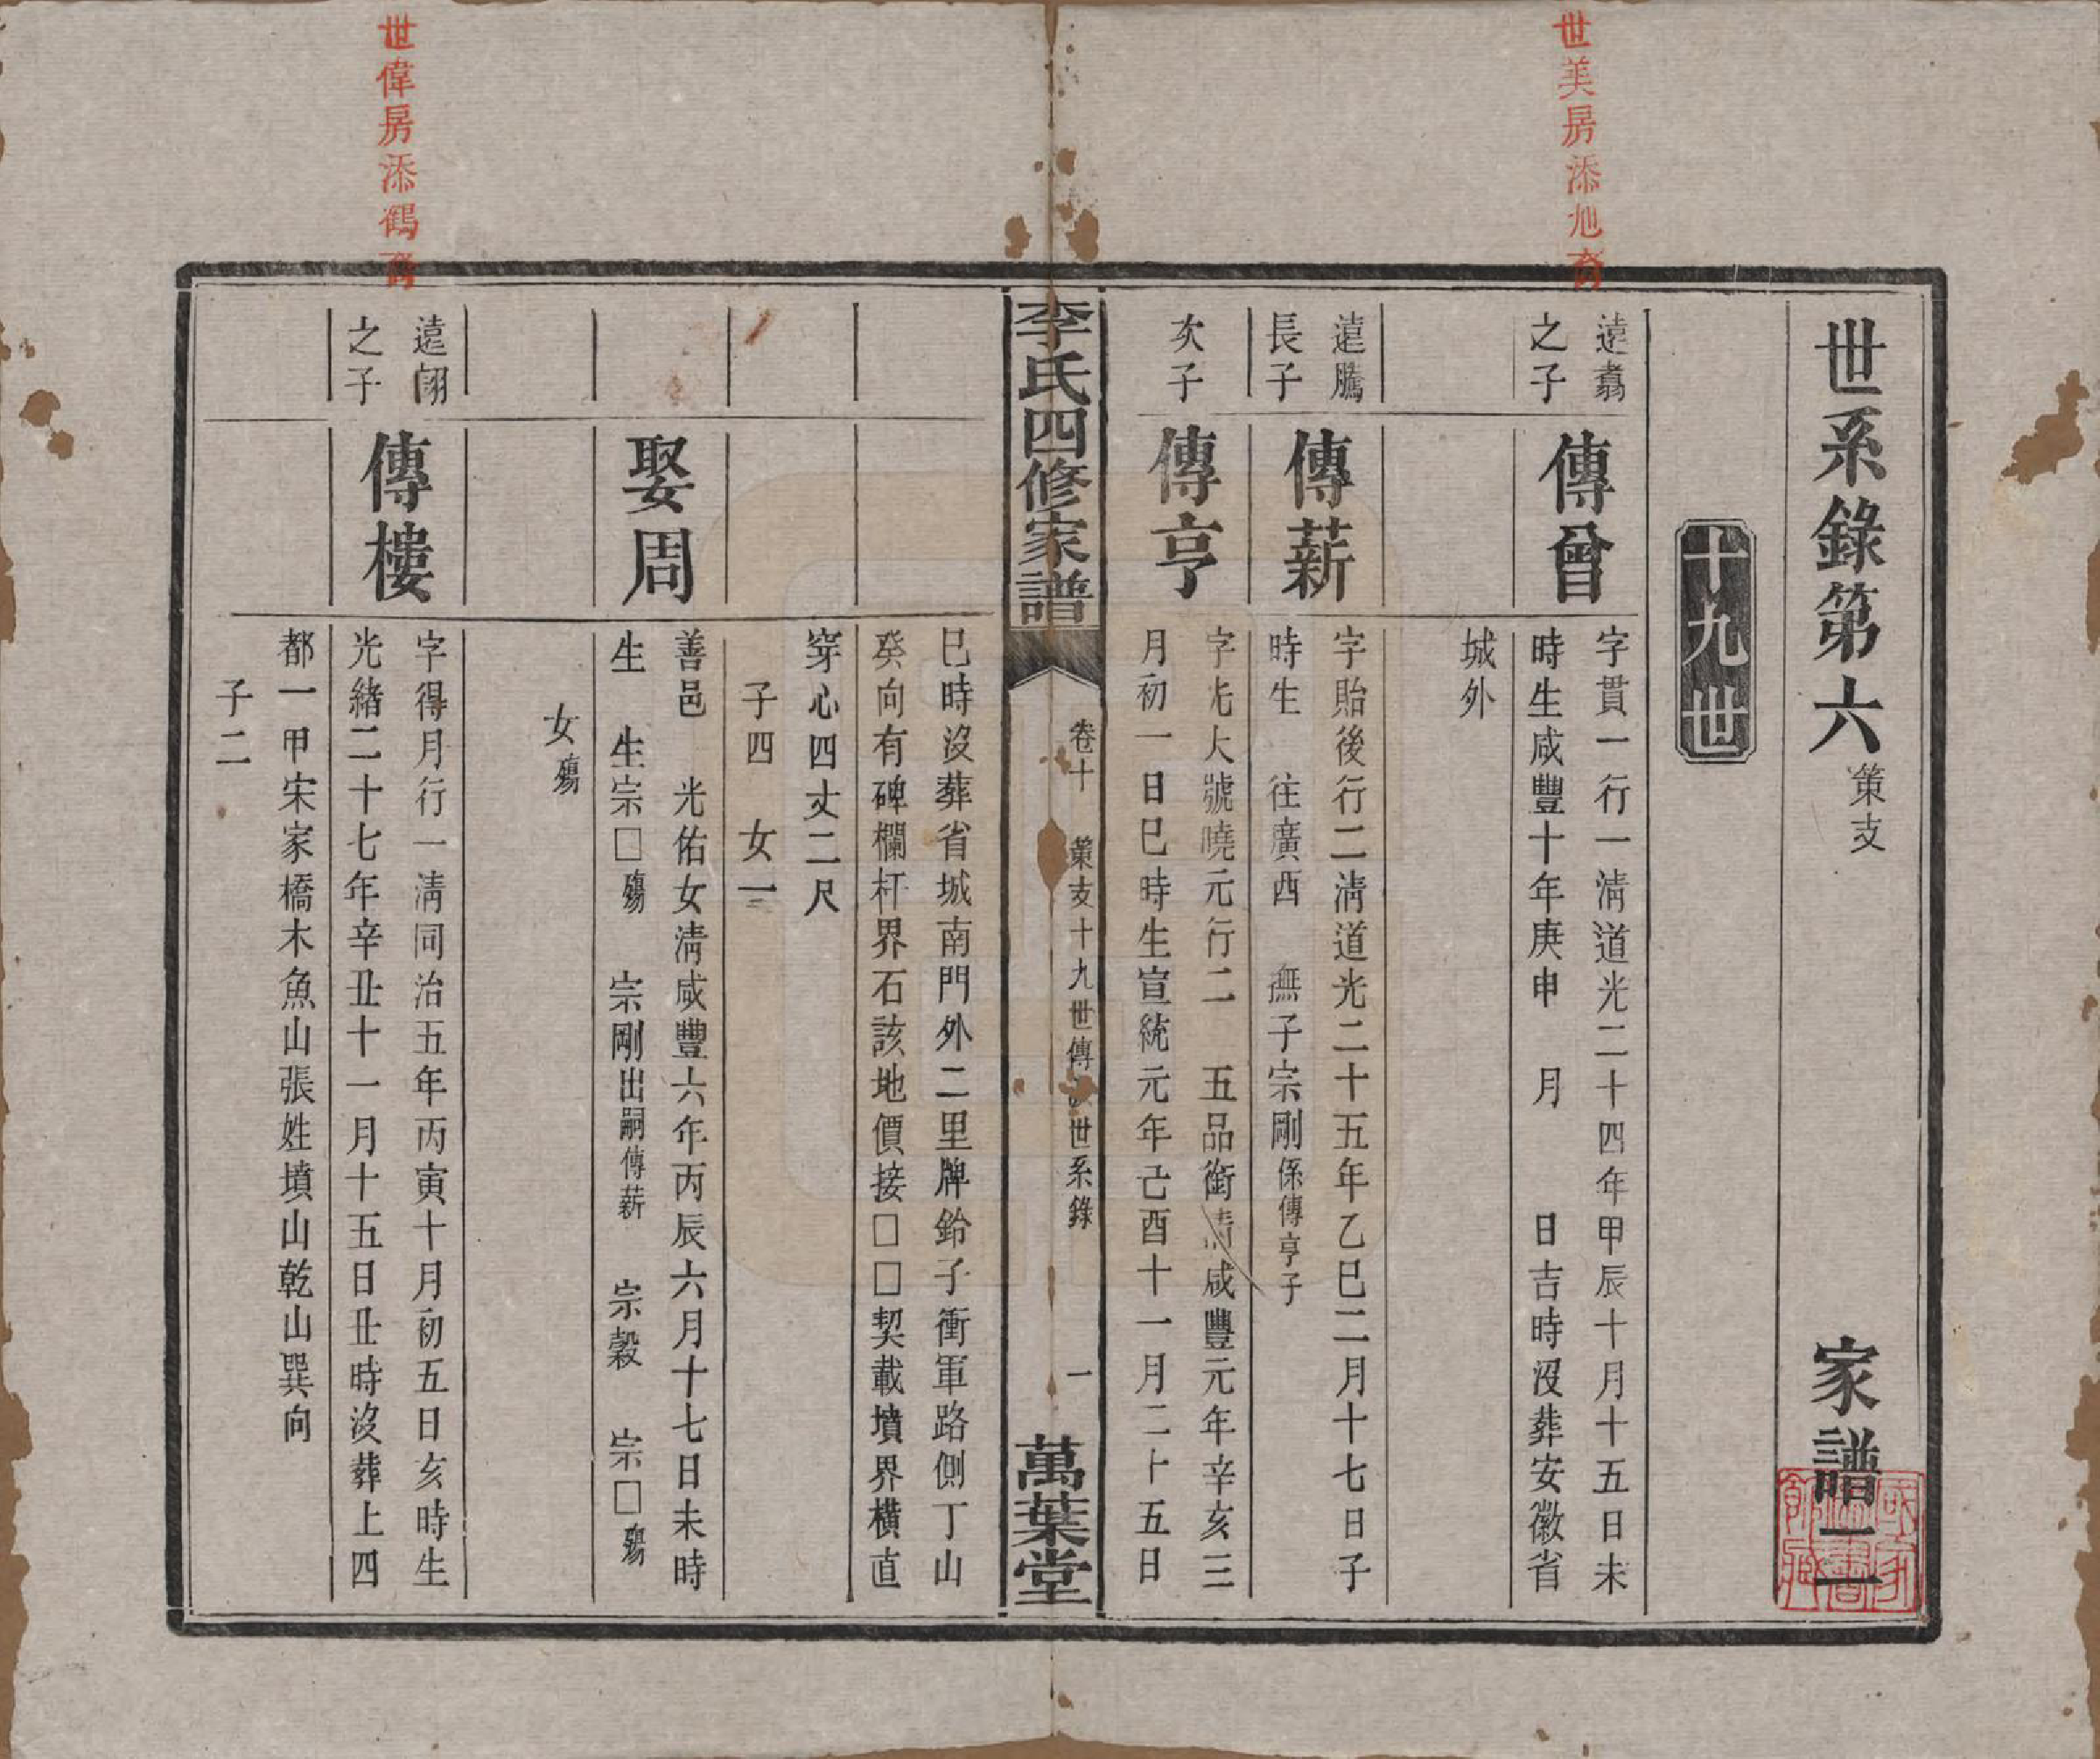 世美房添旭裔
世偉房添鶴裔
世系錄第六 策支 家譜二一
十九世
遠翥
之子
傳曾
字貫一行一清道光二十四年甲辰十月十五日未
時生咸豐十年庚申 月 日吉時沒葬安徽省
城外
遠騰
長子
傳薪
字貽後行二清道光二十五年乙巳二月十七日子
時生 往廣西 撫子宗剛係傳亨子
次子
傳亨
字光大號曉元行二 五品銜清咸豐元年辛亥三
月初一日巳時生宣統元年己酉十一月二十五日
李氏四修家譜 卷十 策支十九世傳 世系錄 一 萬葉堂
巳時沒葬省城南門外二里牌鈴子衝軍路側丁山
癸向有碑欄杆界石該地價接□□契載墳界橫直
穿心四丈二尺
子四 女一
娶周
善邑 光佑女清咸豐六年丙辰六月十七日未時
生 生宗□殤 宗剛出嗣傳薪 宗穀 宗□殤
女殤
遠翮
之子
傳樓
字得月行一清同治五年丙寅十月初五日亥時生
光緒二十七年辛丑十一月十五日丑時沒葬上四
都一甲宋家橋木魚山張姓墳山乾山巽向
子二